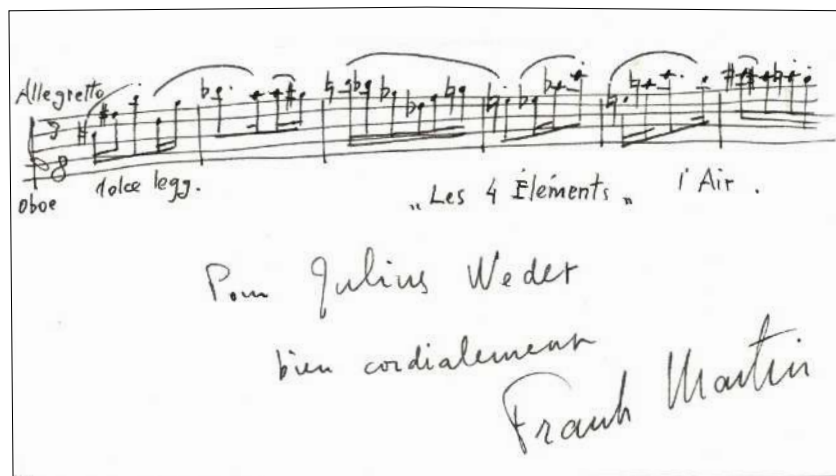 Allegretto
3
8
dolce legg.
oboe
„ Les 4 Éléments „ l'Air .
Pour Julius Weder
bien cordialement
Frank Martin